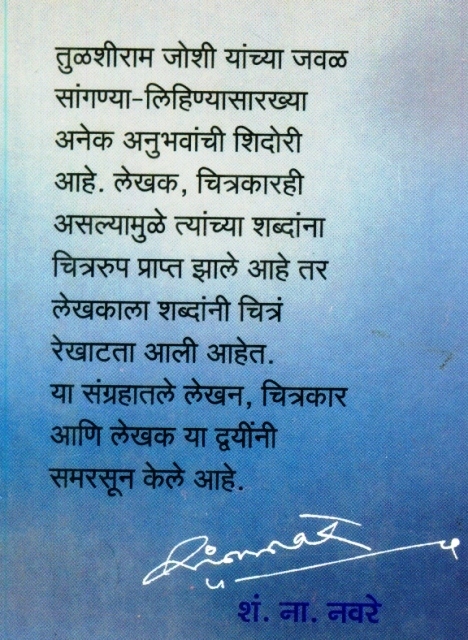 तुळशीराम जोशी यांच्या जवळ
सांगण्या-लिहिण्यासारख्या
अनेक अनुभवांची शिदोरी
आहे. लेखक, चित्रकारही
असल्यामुळे त्यांच्या शब्दांना
चित्ररुप प्राप्त झाले आहे तर
लेखकाला शब्दांनी चित्रं
रेखाटता आली आहेत.
या संग्रहातले लेखन, चित्रकार
आणि लेखक या द्वयींनी
समरसून केले आहे.
शं. ना. नवरे